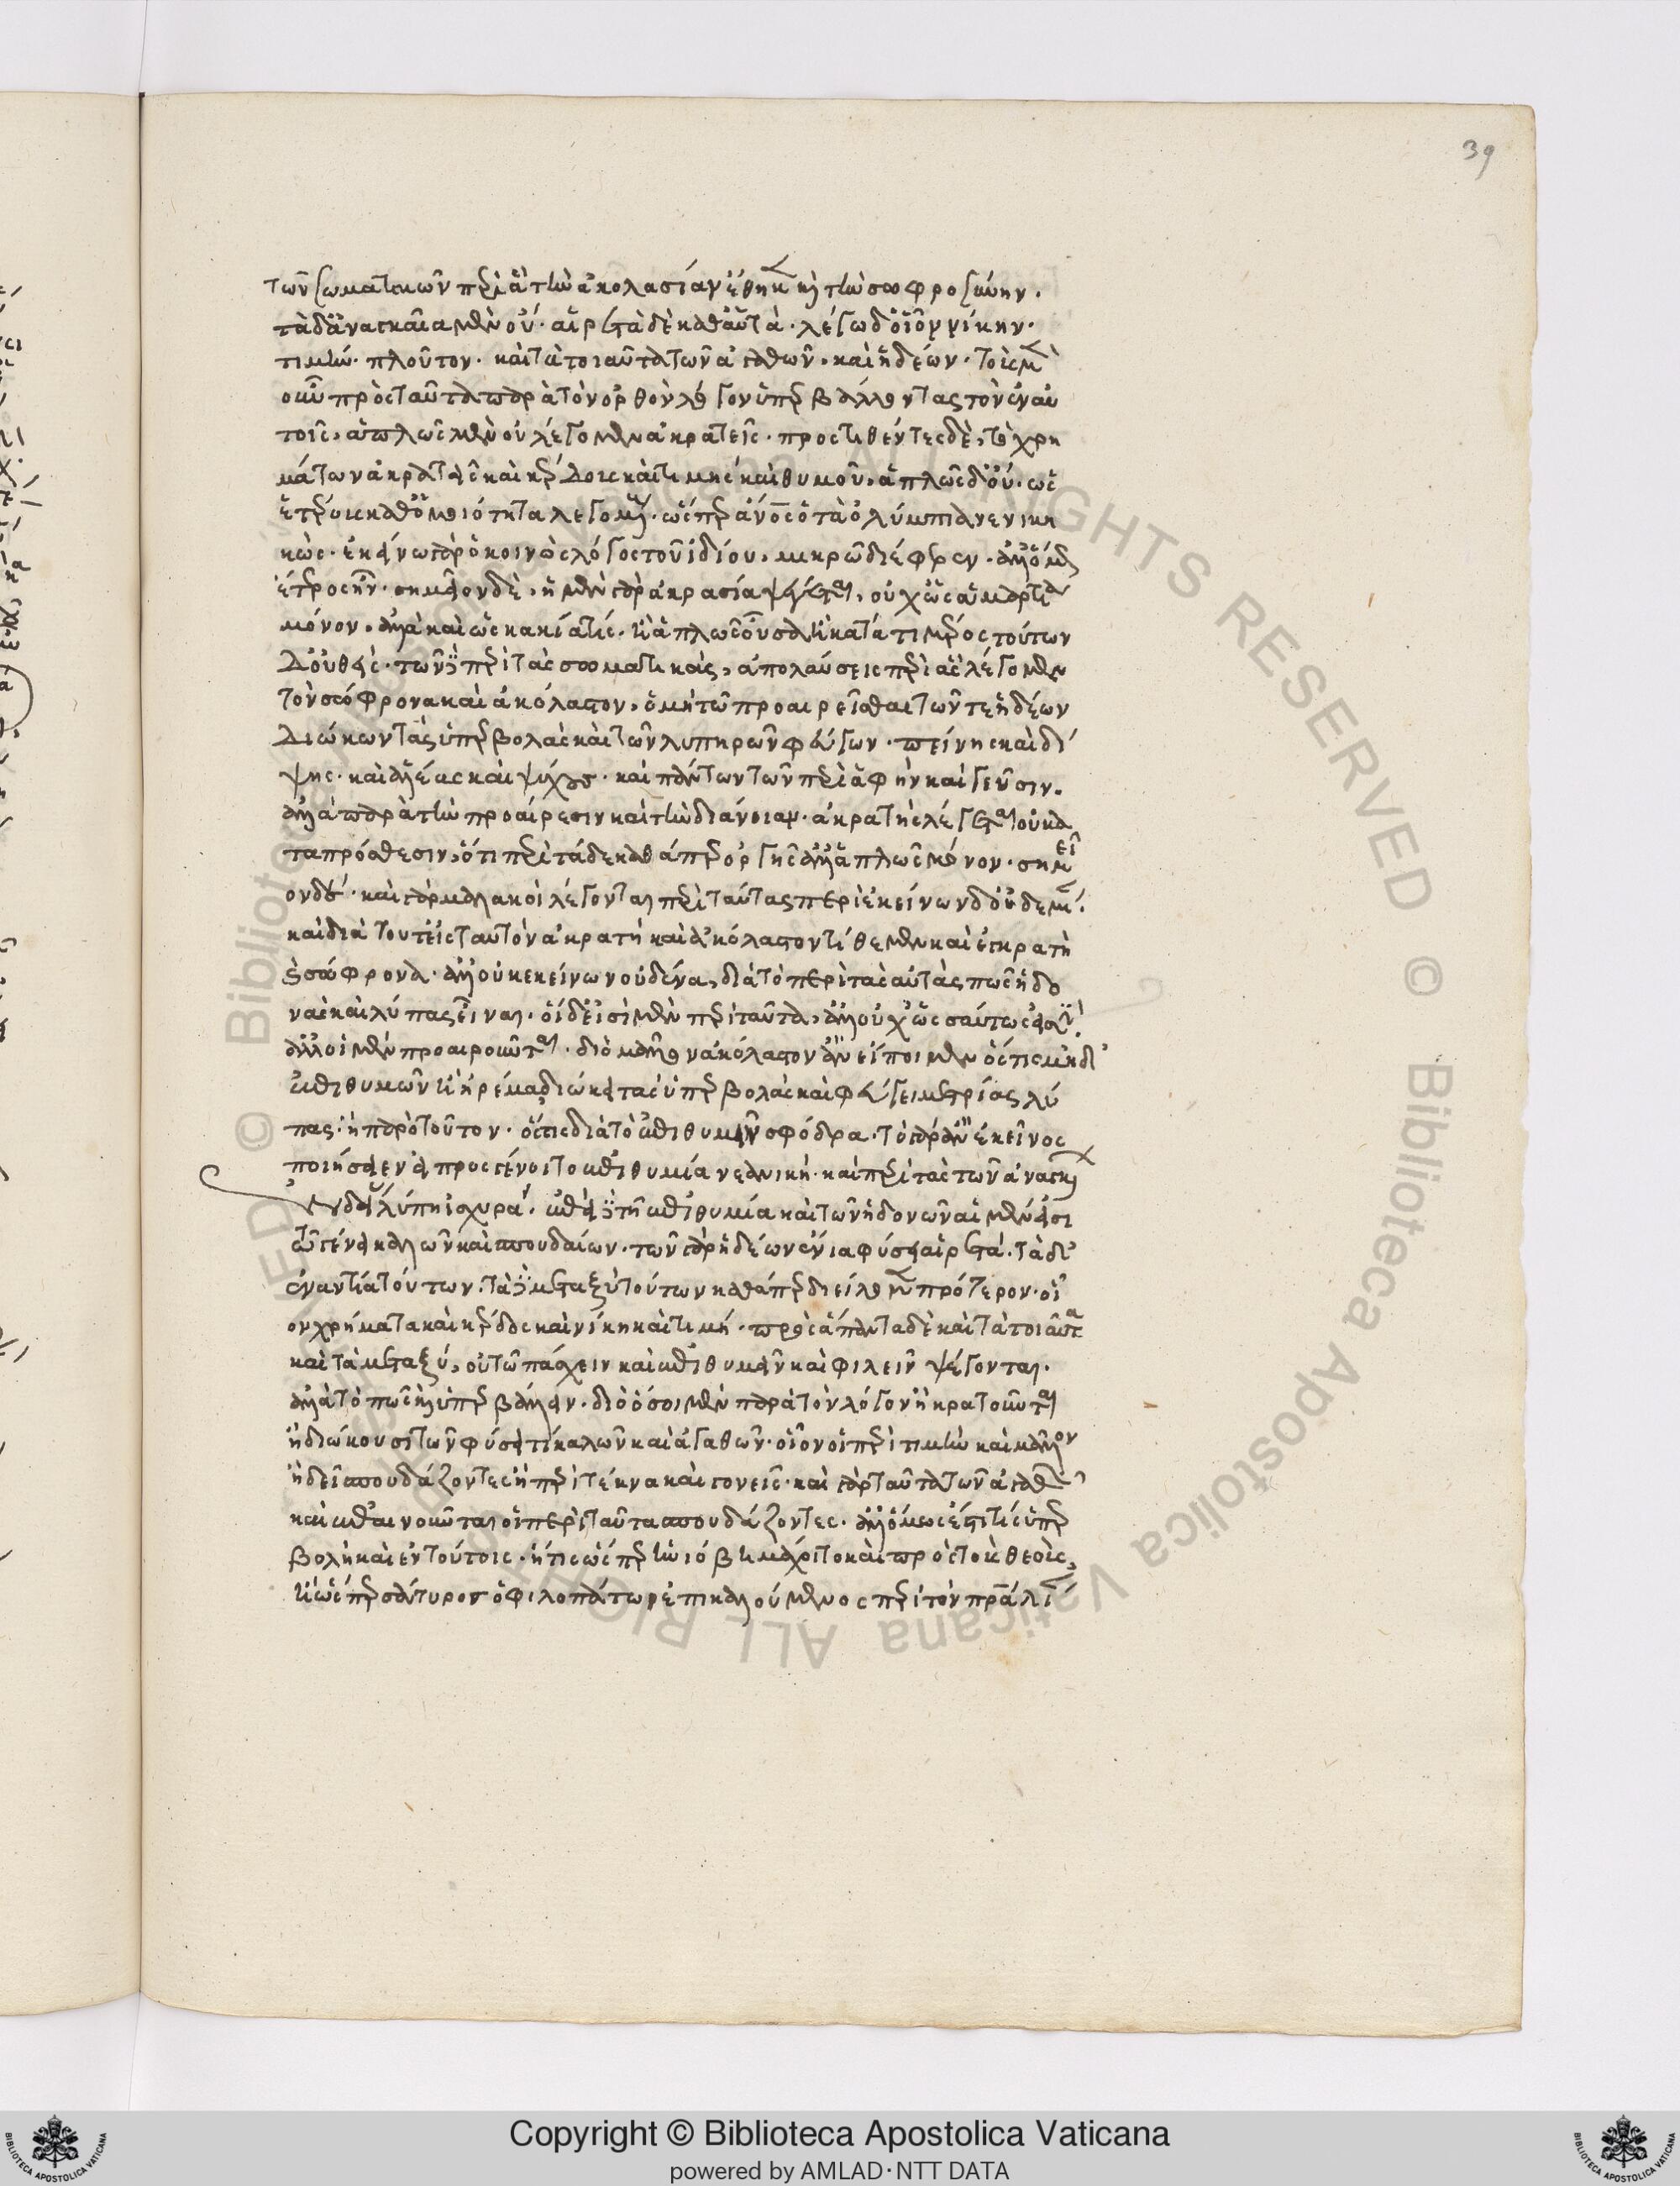 39
των σωματικῶν περὶ ἃ τὴν ἀκολασίαν ἔθηκεν καὶ τὴν σωφροσύνην.
τὰ δ' ἀναγκαῖα μὲν οὔ. αἱρετὰ δὲ καθ' αὑτά. λέγω δ' οἷον νίκην.
τιμὴν. πλοῦτον. καὶ τὰ τοιαῦτα τῶν ἀγαθῶν. καὶ ἡδέων. τοὺς μὲν
οὖν πρὸς ταῦτα παρὰ τὸν ὀρθὸν λόγον ὑπερβάλλοντας τὸν ἐν αὐ
τοῖς, ἁπλῶς μὲν οὐ λέγομεν ἀκρατεῖς. προστιθέντες δὲ, τὸ χρη
μάτων ἀκρατεῖς καὶ κέρδους καὶ τιμῆς καὶ θυμοῦ, ἁπλῶς δ' οὔ. ὡς
ἑτέρους καθ' ὁμοιότητα λεγομέν. ὥσπερ ἄνος ὁ τὰ ὀλύμπια νενικη
κώς. ἐκείνω γὰρ ὁ κοινὸς λόγος τοῦ ἰδίου, μικρῶ διέφερεν. ἀλλ' ὅμως
ἕτερος ἦν. σημεῖον δὲ, ἡ μὲν γὰρ ἀκρασία ψέγεται, οὐχ ὡς ἁμαρτία
μόνον, ἀλλὰ καὶ ὡς κακία τις. ἢ ἁπλῶς οὖσα ἢ κατά τι μέρος τούτων
δ' οὐθείς. τῶν δὲ περὶ τὰς σωματικὰς, ἀπολαύσεις περὶ ἃς λέγομεν
τὸν σώφρονα καὶ ἀκόλαστον, ὁ μὴ τῶ προαιρεῖσθαι τῶν τε ἡδέων
διώκων τὰς ὑπερβολὰς καὶ τῶν λυπηρῶν φεύγων. πείνης καὶ δί
ψης. καὶ ἀλέας καὶ ψύχους. καὶ πάντων τῶν περὶ ἁφὴν καὶ γεῦσιν.
ἀλλὰ παρὰ τὴν προαίρεσιν καὶ τὴν διάνοιαν. ἀκρατὴς λέγεται οὐ κα
τα πρόσθεσιν, ὅτι περὶ τάδε καθάπερ ὀργῆς ἀλλ' ἁπλῶς μόνον. σημεῖ
ον δέ. καὶ γὰρ μαλακοὶ λέγονται περὶ ταύτας περὶ ἐκείνων δ' οὐδεμί.
καὶ διὰ τοῦτ' εἰς ταυτὸν ἀκρατῆ καὶ ἀκόλαστον τίθεμεν καὶ ἐγκρατῆ
καὶ σώφρονα. ἀλλ' οὐκ ἐκείνων οὐδένα, διὰ τὸ περὶ τὰς αὐτάς πως ἡδο
νὰς καὶ λύπας εἶναι. οἱ δ' εἰσὶ μὲν περὶ ταῦτα, ἀλλ' οὐχ ὡσαύτως εἰσὶν.
ἀλλ' οἱ μὲν προαιροῦνται. διὸ μᾶλλον ἀκόλαστον ἂν εἴποιμεν ὅστις μὴ δι
ἐπιθυμῶν ἢ ἠρέμα διώκει τὰς ὑπερβολὰς καὶ φεύγει μετρίας λύ
πας. ἢ παρὸ τοῦτον. ὅστις διὰ τὸ ἐπιθυμεῖν σφόδρα. τὸ γὰρ ἂν ἐκεῖνος
ποιήσειεν εἰ προσγένοιτο ἐπιθυμία νεανικὴ. καὶ περὶ τὰς τῶν ἀναγκαίων
ἐνδείας λύπη ἰσχυρά. ἐπεὶ δὲ τῆ ἐπιθυμία καὶ τῶν ἡδονῶν αἱ μὲν εἰσι
τῶ γένει καλῶν καὶ σπουδαίων. τῶν γὰρ ἡδέων ἔνια φύσει αἱρετά. τὰ δ'
ἐναντία τούτων. τὰ δὲ μεταξὺ τούτων καθάπερ διείλομεν πρότερον. οἷ
ον χρήματα καὶ κέρδος καὶ νίκη καὶ τιμή. πρὸς ἅπαντα δὲ καὶ τὰ τοιαῦτα
καὶ τὰ μεταξύ, οὐ τῶ πάσχειν καὶ ἐπιθυμεῖν καὶ φιλεῖν ψέγονται.
ἀλλὰ τὸ πῶς καὶ ὑπερβάλλειν. διὸ ὅσοι μὲν παρὰ τὸν λόγον ἢ κρατοῦνται
ἢ διώκουσι τῶν φύσει τι καλῶν καὶ ἀγαθῶν. οἷον οἱ περὶ τιμὴν καὶ μᾶλλον
ἢ δεῖ σπουδάζοντες ἢ περὶ τέκνα καὶ γονεῖς. καὶ γὰρ ταῦτα τῶν ἀγαθῶν
καὶ ἐπαινοῦνται οἱ περὶ ταῦτα σπουδάζοντες. ἀλλ' ὅμως ἔστι τὶς ὑπερ
βολὴ καὶ ἐν τούτοις. ἥ τις ὥσπερ ἡ νιόβη μάχοιτο καὶ πρὸς τοὺς θεούς,
ἢ ὥσπερ σάτυρος ὁ φιλοπάτωρ ἐπικαλούμενος περὶ τὸν πρα
Copyright © Biblioteca Apostolica Vaticana
powered by AMLAD·NTT DATA